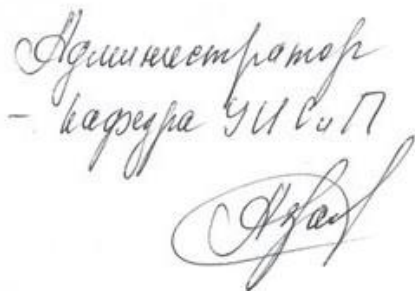 Администратор
- кафедра УИСиП